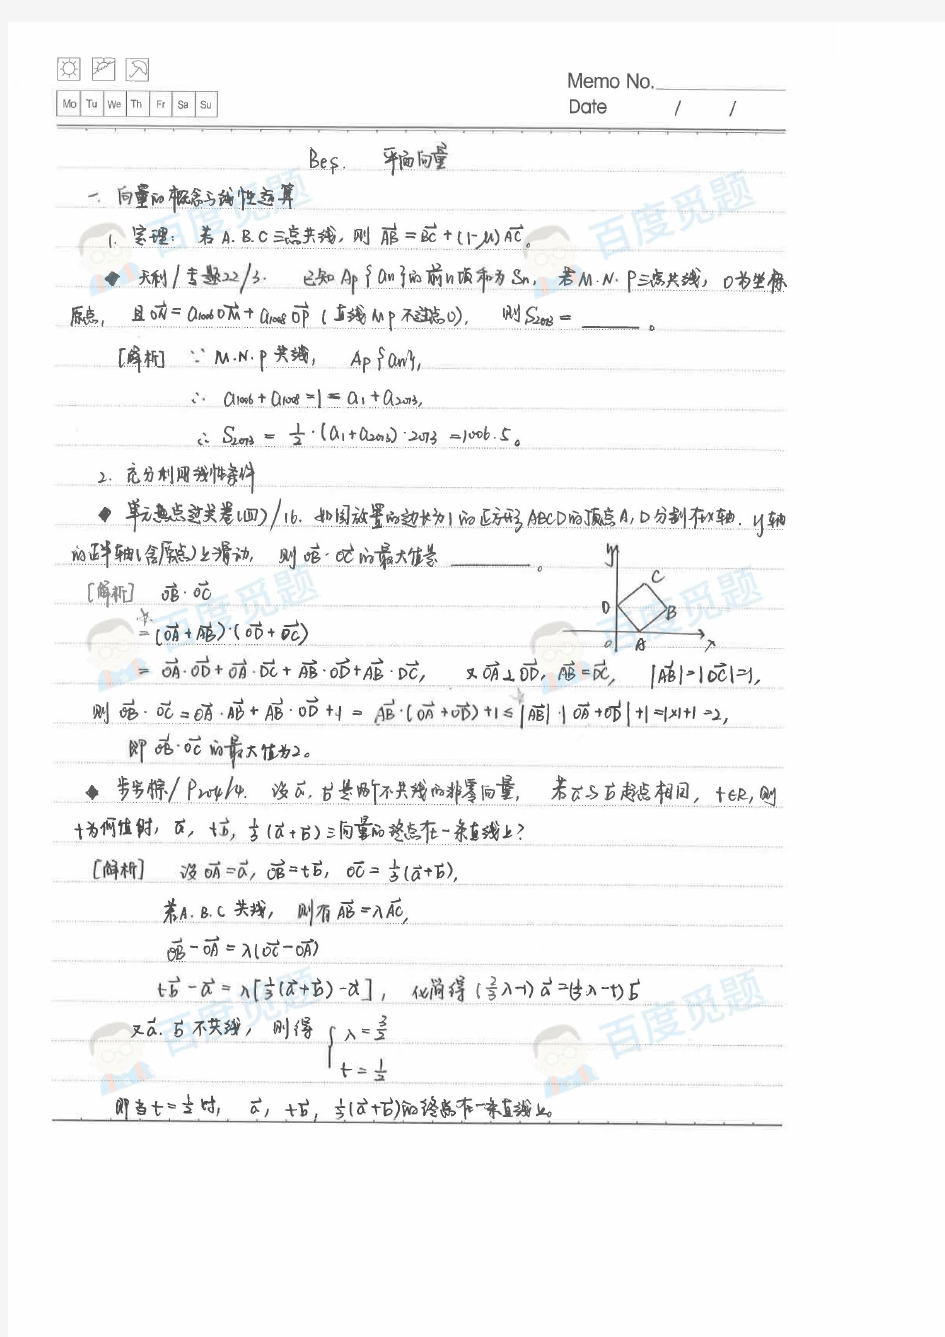 Memo No.
Mo Tu We Th Fr Sa Su
Date / /
Be§. 平面向量
一. 向量的概念与线性运算
1. 定理: 若A.B.C三点共线, 则 AB⃗ = BC⃗ + (1-μ)AC⃗。
◆ 天利/专题22/3. 已知Ap{an}的前n项和为Sn, 若M.N.P三点共线, O为坐标
原点, 且ON⃗ = a1006OM⃗ + a1008OP⃗ (直线MP不过点O), 则S2013 = ______。
[解析] ∵ M.N.P共线, Ap{an},
∴ a1006 + a1008 = 1 = a1 + a2013,
∴ S2013 = 1/2·(a1+a2013)·2013 = 1006.5。
2. 充分利用线性条件
◆ 单元热点过关卷(四)/16. 如图放置的边长为1的正方形ABCD的顶点A,D分别在x轴.y轴
的正半轴(含原点)上滑动, 则OB⃗·OC⃗的最大值是 ______。
[解析] OB⃗·OC⃗
☆= (OA⃗+AB⃗)·(OD⃗+DC⃗)
= OA⃗·OD⃗+OA⃗·DC⃗+AB⃗·OD⃗+AB⃗·DC⃗, 又OA⃗⊥OD⃗, AB⃗=DC⃗, |AB⃗|=|DC⃗|=1,
y C D B O A x
则OB⃗·OC⃗=OA⃗·AB⃗+AB⃗·OD⃗+1 = AB⃗·(OA⃗+OD⃗)+1 ≤☆ |AB⃗|·|OA⃗+OD⃗|+1=1×1+1=2,
即OB⃗·OC⃗的最大值为2。
◆ 步步高/P204/4. 设a⃗, b⃗是两个不共线的非零向量, 若a⃗与b⃗起点相同, t∈R, 则
t为何值时, a⃗, tb⃗, 1/3(a⃗+b⃗)三向量的终点在一条直线上?
[解析] 设OA⃗=a⃗, OB⃗=tb⃗, OC⃗=1/3(a⃗+b⃗),
若A.B.C共线, 则有AB⃗=λAC⃗,
OB⃗-OA⃗=λ(OC⃗-OA⃗)
tb⃗-a⃗=λ[1/3(a⃗+b⃗)-a⃗], 化简得(2/3λ-1)a⃗=(1/3λ-t)b⃗
又a⃗.b⃗不共线, 则得 { λ=3/2
t=1/2
即当t=1/2时, a⃗, tb⃗, 1/3(a⃗+b⃗)的终点在一条直线上。
百度觅题
百度觅题
百度觅题
百度觅题
百度觅题
百度觅题